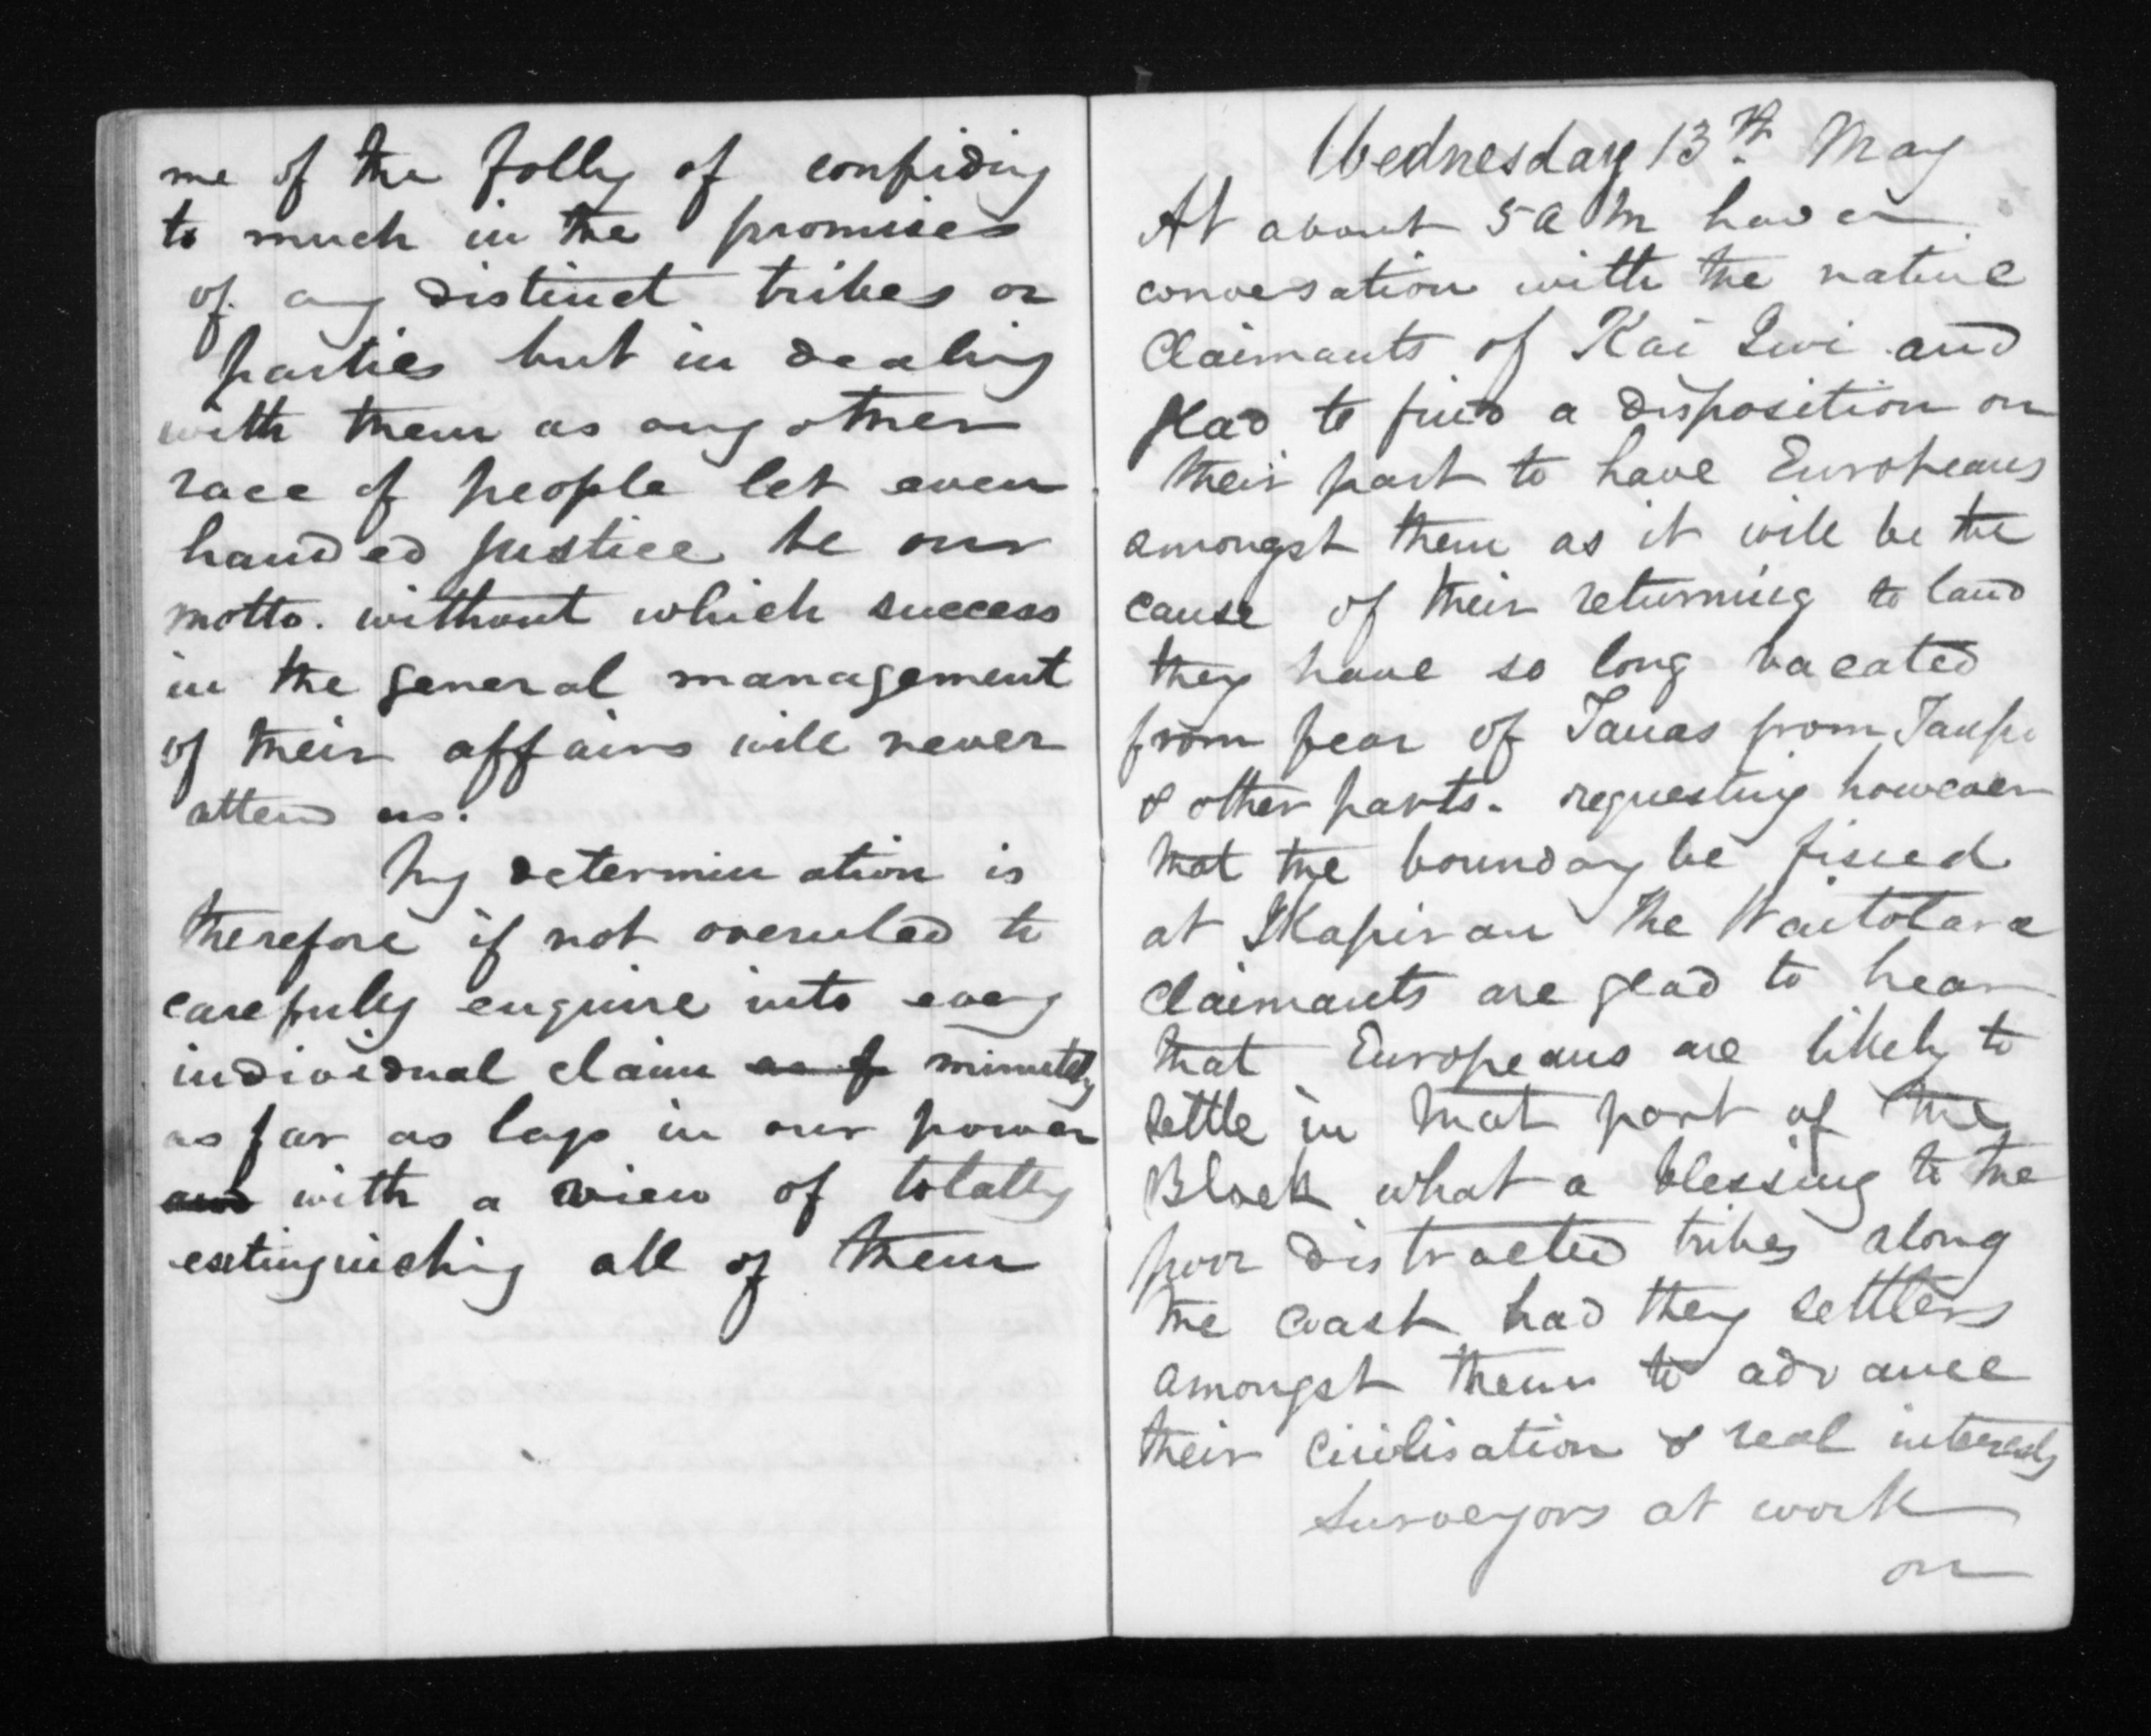 me of the folly of confiding
to much in the promises
of any distinct tribes or
parties but in dealing
with them as any other
race of people let even
handed justice be our
motto. without which success
in the general management
of their affairs will never
attend us.
My determination is
therefore if not overuled to
carefully enquire into every
individual claim as f minutely
as far as lays in our power
and with a view of totally
extinguishing all of them
Wednesday 13th May
At about 5 A M have a
conversation with the native
Claimants of Kai Iwi and
glad to find a disposition on
their part to have Europeans
amongst them as it will be the
cause of their returning to land
they have so long vacated
from fear of Tauas from Taupo
& other parts. requesting however
that the boundary be fixed
at The Waitotara
Claimants are glad to hear
that Europeans are likely to
settle in that part of the
Block what a blessing to the
poor distracted tribes along
the coast had they settlers
amongst them to advance
their civilisation & real interests
Surveyors at work
on